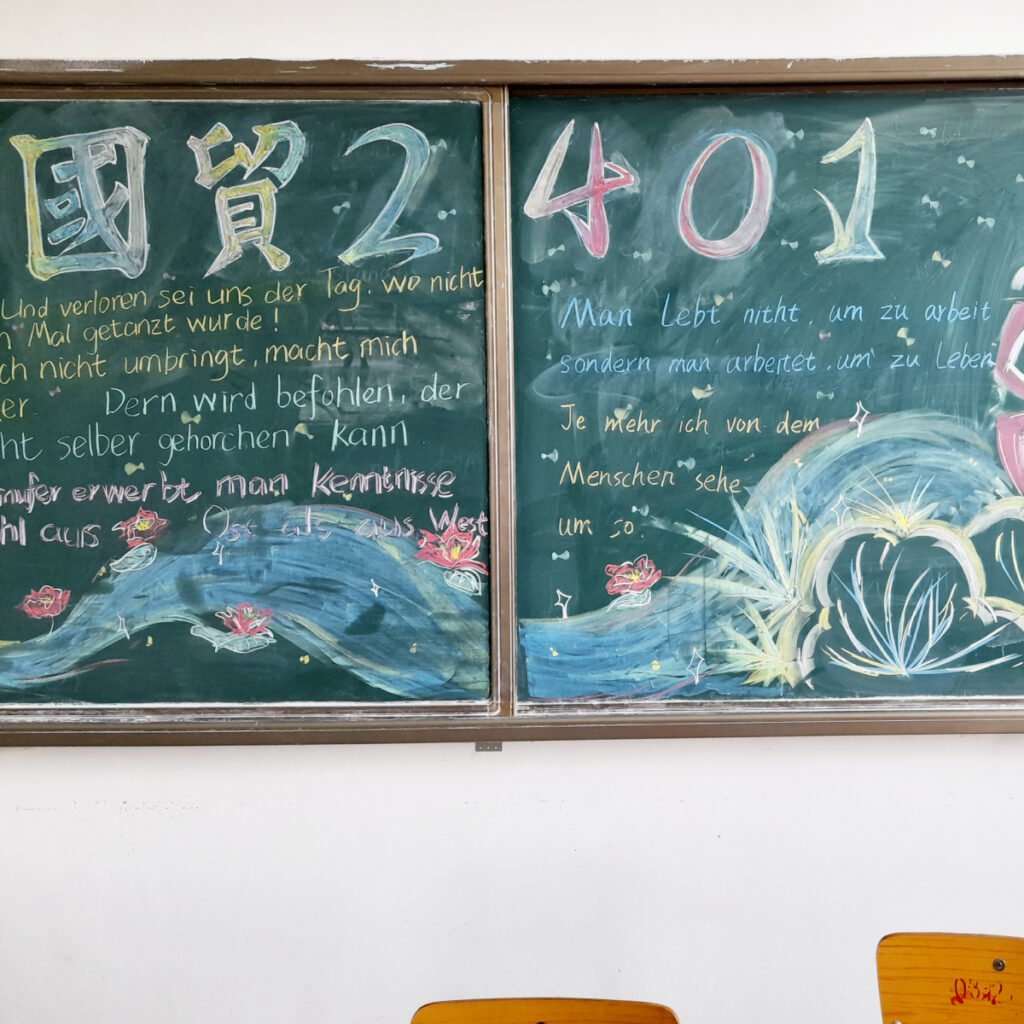 國貿2401
Und verloren sei uns der Tag. wo nicht
n Mal getanzt wurde!
ch nicht umbringt, macht mich
er. Dern wird befohlen, der
cht selber gehorchen kann
mufer erwerbt man Kenntnisse
hl aus Ost als aus West
Man Lebt nitht, um zu arbeit
sondern man arbeitet, um zu Leben
Je mehr ich von dem
Menschen sehe
um so.